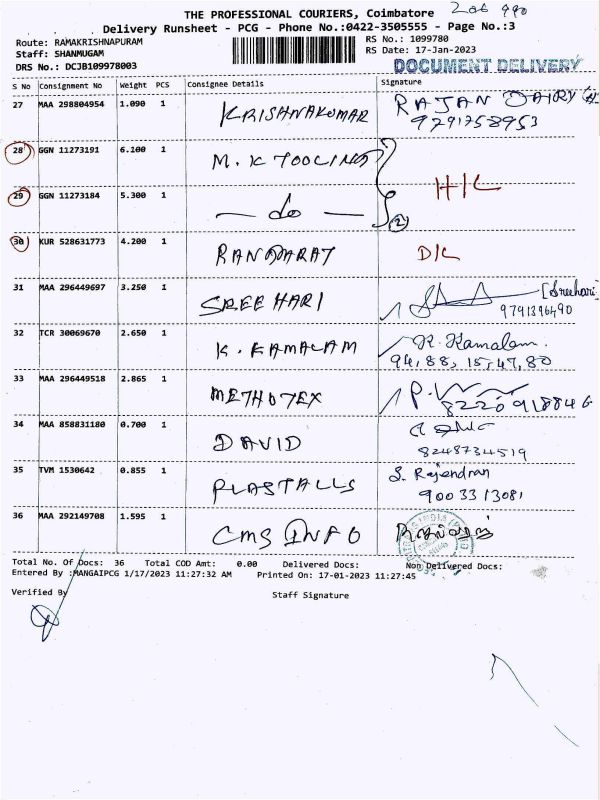 THE PROFESSIONAL COURIERS, Coimbatore
Delivery Runsheet - PCG - Phone No.:0422-3505555 - Page No.:3
Route: RAMAKRISHNAPURAM
Staff: SHANMUGAM
DRS No.: DCJB109978003
RS No.: 1099780
RS Date: 17-Jan-2023
DOCUMENT DELIVERY
S No Consignment No Weight PCS Consignee Details Signature
27 MAA 298804954 1.090 1 KRISHNAKUMAR RAJAN DAIRY
9791758953
28 GGN 11273191 6.100 1 M.K TOOLING
29 GGN 11273184 5.300 1 — do — (2) H/L
30 KUR 528631773 4.200 1 D/L
31 MAA 296449697 3.250 1 SREE HARI [Sreehari]
9791396490
32 TCR 30069670 2.650 1 K. KAMALAM K. Kamalam.
94,88,15,47,80
33 MAA 296449518 2.865 1 METHOTEX P.
8220918846
34 MAA 858831180 0.700 1 DAVID
8248734519
35 TVM 1530642 0.855 1 PLASTALLS S. Rajendran
9003313081
36 MAA 292149708 1.595 1 CMS INFO
Total No. Of Docs: 36 Total COD Amt: 0.00 Delivered Docs: Non Delivered Docs:
Entered By :MANGAIPCG 1/17/2023 11:27:32 AM Printed On: 17-01-2023 11:27:45
Verified By Staff Signature